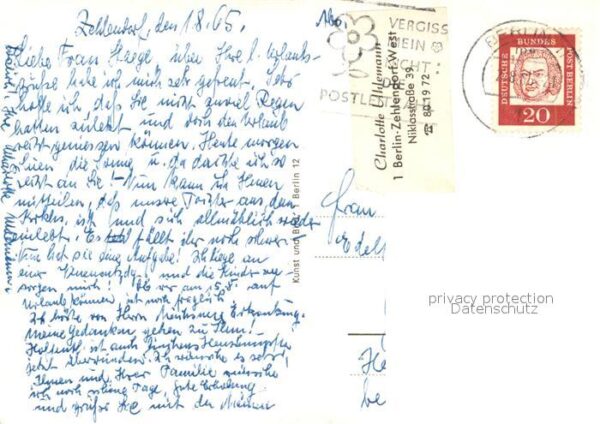 Zehlendorf, den 1.8.65.
Liebe Frau Stiege, über Ihre l. Urlaubs-
grüße habe ich mich sehr gefreut. Ich
hoffe ich daß Sie nicht zuviel Regen
hatten zuletzt und den Urlaub
recht geniessen können. Heute morgen
schien die Sonne u. da dachte ich so
recht an Sie! Nun kann ich Ihnen
mitteilen, daß unsere Tochter aus dem
ist und sich allmählich wieder
einlebt. Es fällt ihr noch schwer.
Nun hat sie eine Aufgabe! Ich liege an
einer und die Kinder ver-
sorgen mich! Ob wir am 15.8. auf
Urlaub können, ist noch fraglich
Ich hörte von Herrn Erkrankung.
Meine Gedanken gehen zu Ihm!
Hoffentl. ist auch
jetzt überwunden. Ich wünsche es sehr!
Ihnen und Ihrer Familie wünsche
ich noch schöne Tage, gute Erholung
und grüße Sie mit den Meinen
Abs.
VERGISS
MEIN
NICHT
POSTLEITZAHL
Charlotte Uhlemann
1 Berlin-Zehlendorf-West
Niklasstraße 39
☎ 84 19 72
BERLIN
DEUTSCHE BUNDESPOST BERLIN
20
Kunst und Bild, 1 Berlin 12
Frau
Edel
He
be
privacy protection
Datenschutz